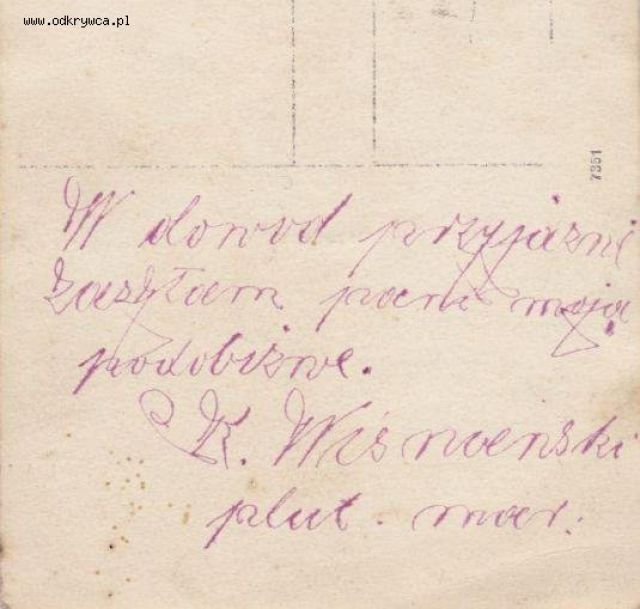 www.odkrywca.pl
7351
W dowod przyjazni
zaszłam pani moją
podobizne.
K. Wiśnoeński
plut. mar.